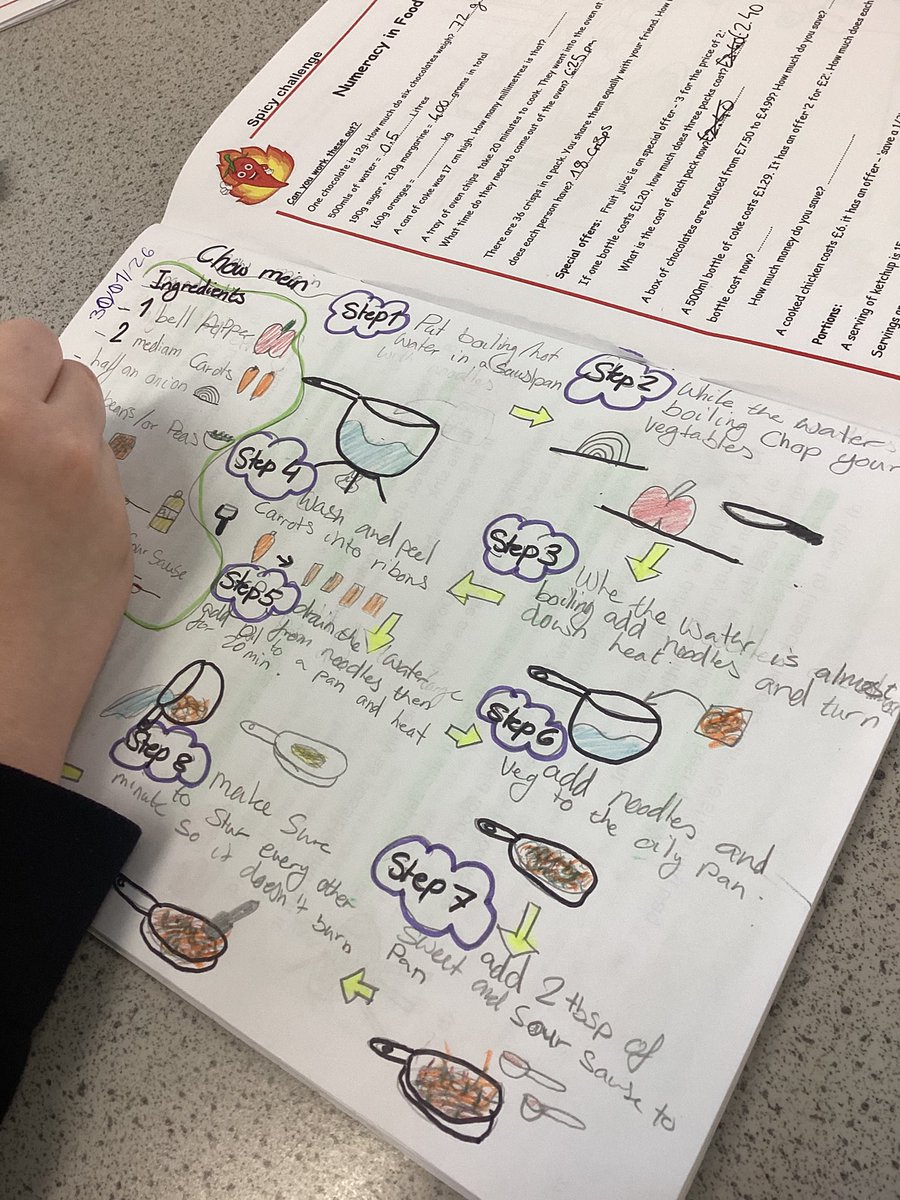 Spicy challenge
Numeracy in Food
Can you work these out?
One chocolate is 12g. How much do six chocolates weigh? 72 g
500mls of water = 0.5 Litres
190g sugar + 210g margarine = 400 grams in total
160g oranges = kg
A can of coke was 17 cm high. How many millimetres is that?
A tray of oven chips take 20 minutes to cook. They went into the oven at
What time do they need to come out of the oven? 6:25pm
There are 36 crisps in a pack. You share them equally with your friend. How
does each person have? 18 Crisps
Special offers: Fruit juice is on special offer - 3 for the price of 2:
If one bottle costs £1.20, how much does three packs cost? £2.40
What is the cost of each pack now?
A box of chocolates are reduced from £7.50 to £4.99? How much do you save?
A 500ml bottle of coke costs £1.29. It has an offer 2 for £2. How much does each
bottle cost now?
How much money do you save?
A cooked chicken costs £6, it has an offer - save a 1/
Portions:
A serving of ketchup is 15
Servings
30/01/26
Chow mein
Ingredients
- 1 bell
- 2 mediam Carots
- half an onion
beans/or Peas
Sause
Step 1
Put boiling/hot
water in a
Step 2
While the water
boiling Chop your
vegtables
Step 3
the water is almost
boiling add noodles and turn
down heat
Step 4
Wash and peel
Carrots into ribons
Step 5
drain the water
from noodles then
oil to a pan and heat
for 20 min.
Step 6
add noodles and
veg to the oily pan.
Step 7
add 2 tbsp of
sweet and sour sause to
pan
Step 8
make Sure
to Stur every other
minute so it doesn't burn